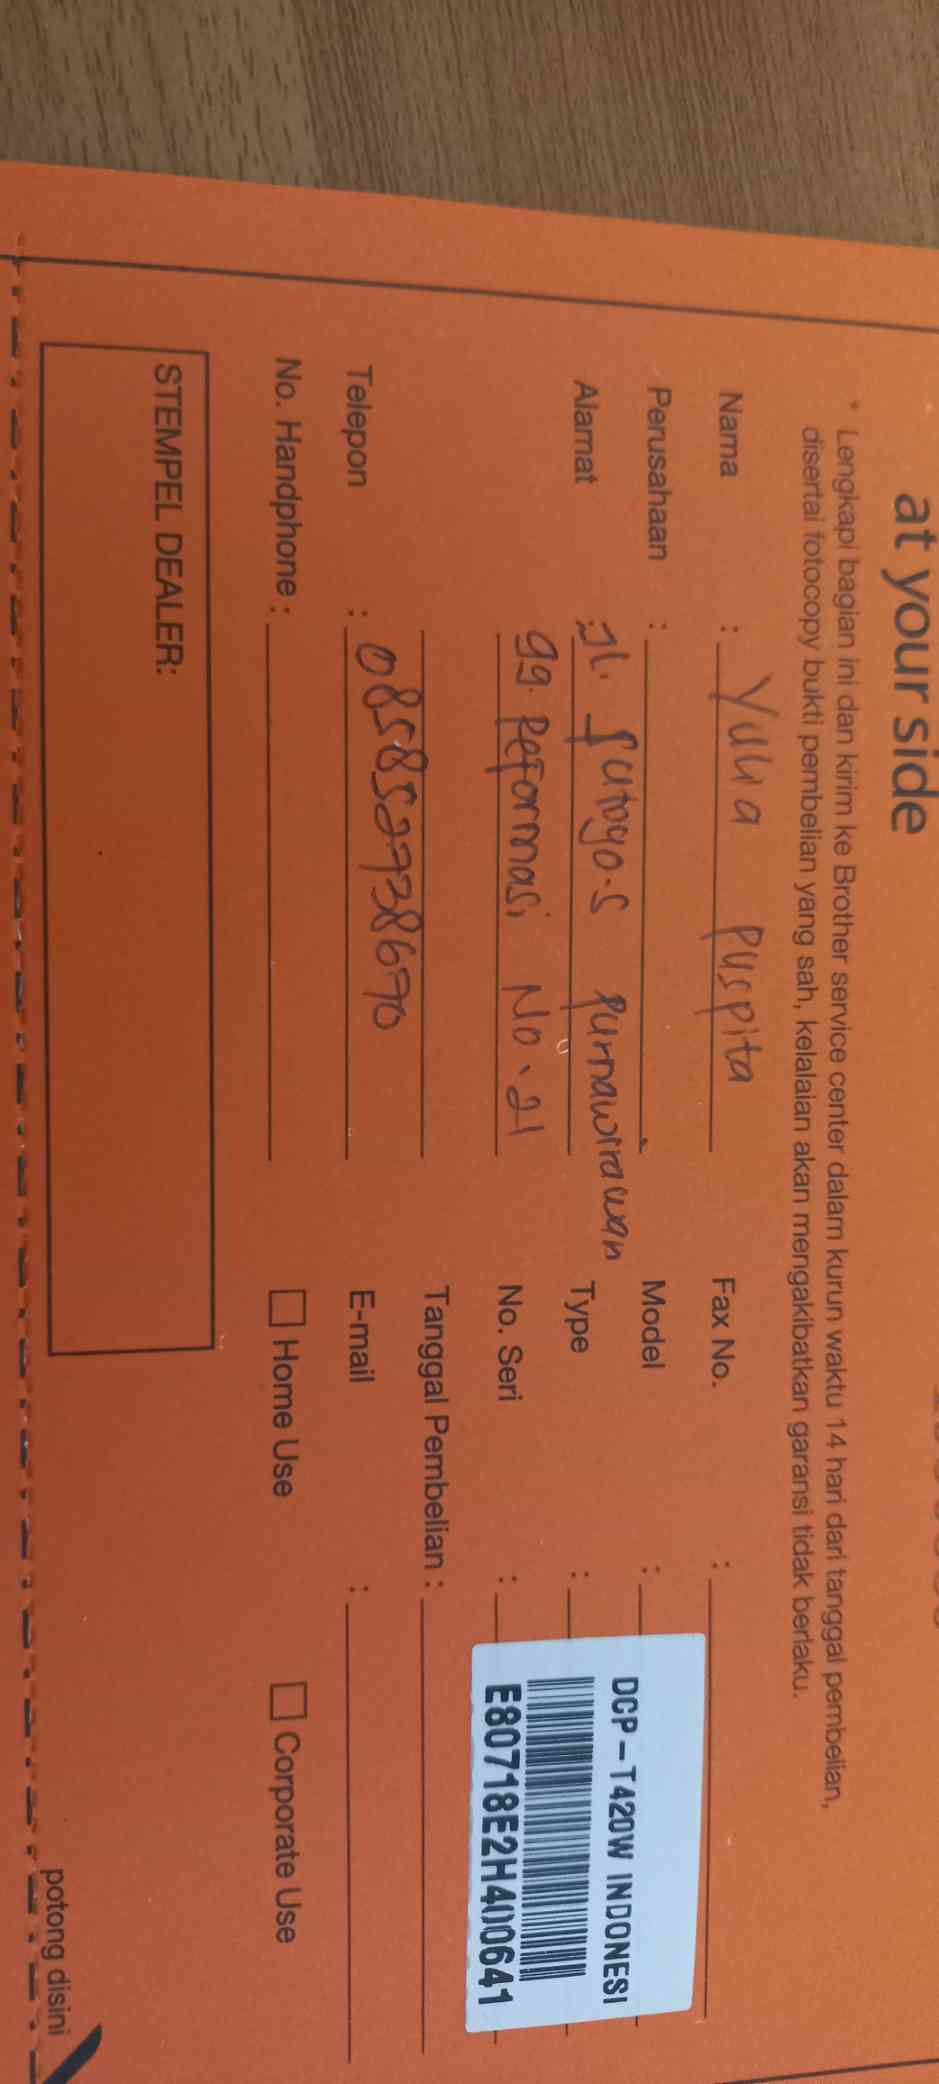 at your side
* Lengkapi bagian ini dan kirim ke Brother service center dalam kurun waktu 14 hari dari tanggal pembelian,
disertai fotocopy bukti pembelian yang sah, kelalaian akan mengakibatkan garansi tidak berlaku.
Nama : Yulia puspita
Perusahaan :
Alamat : Jl. Sutoyo.S purnawirawan
gg. Reformasi No. 21
Telepon : 085852738670
No. Handphone :
STEMPEL DEALER:
Fax No. :
Model :
Type :
No. Seri :
DCP-T420W INDONESI
E80718E2H400641
Tanggal Pembelian :
E-mail :
Home Use
Corporate Use
potong disini